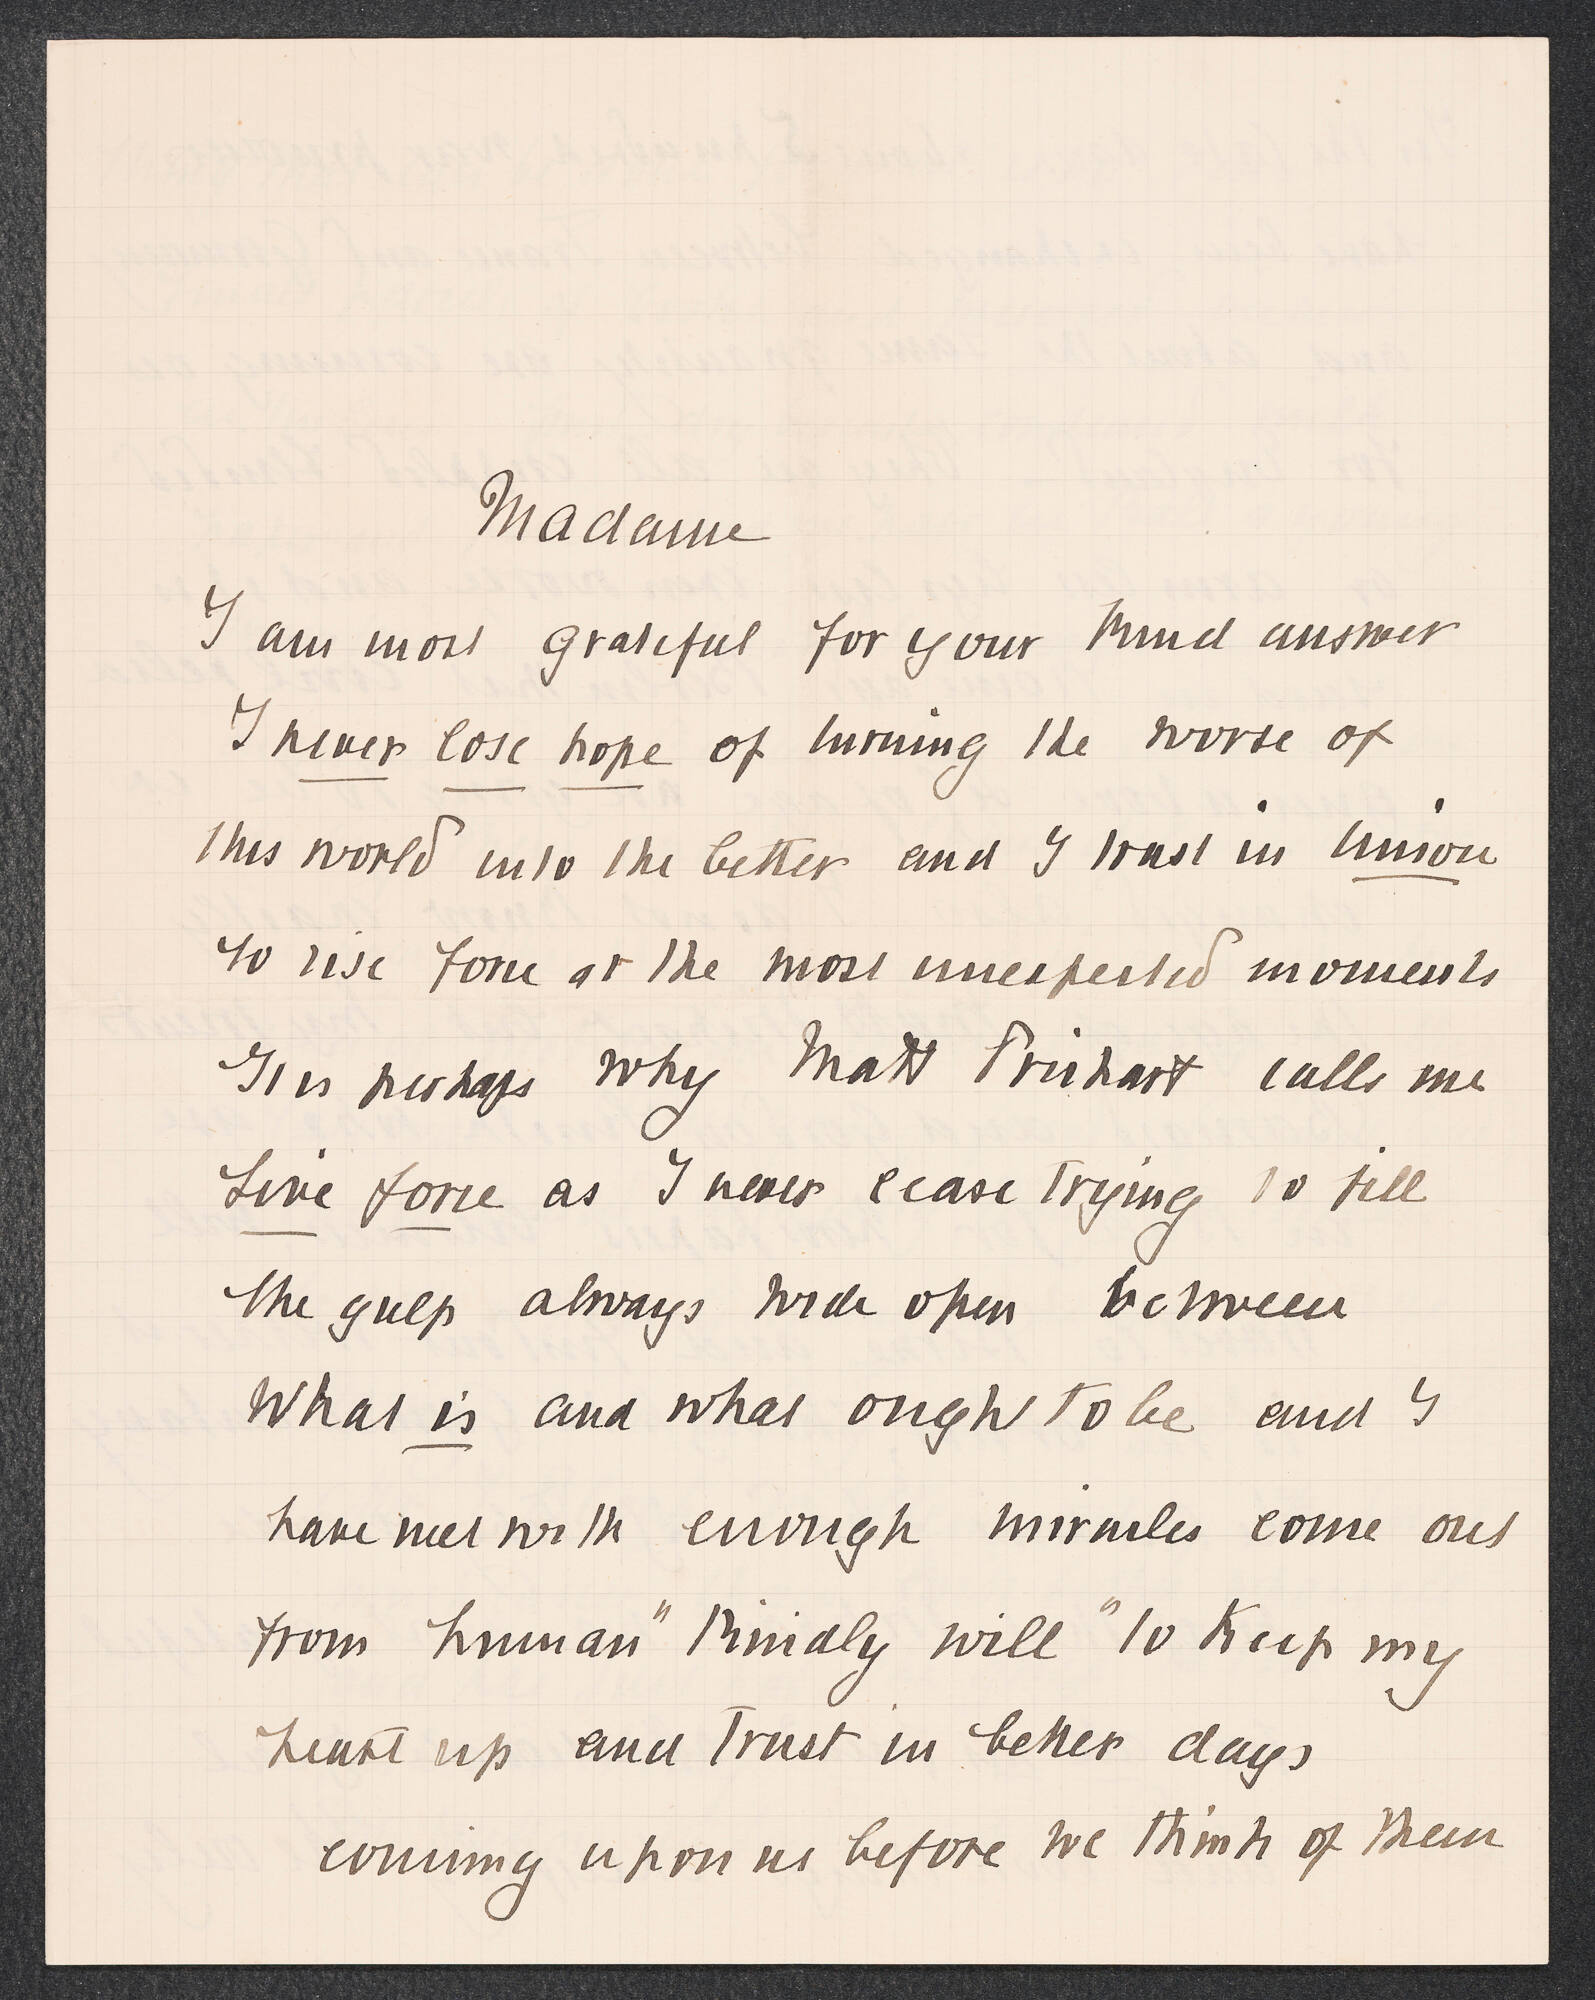 Madame
I am most grateful for your kind answer
I never lose hope of turning the worse of
this world into the better and I trust in Union
to rise force at the most unexpected moments
It is perhaps why Matt Prichart calls me
Live force as I never cease trying to fill
the gulp always wide open between
What is and what ought to be and I
have met with enough miracles come out
from human "Kindly will" to keep my
heart up and trust in better days
coming upon us before we think of them